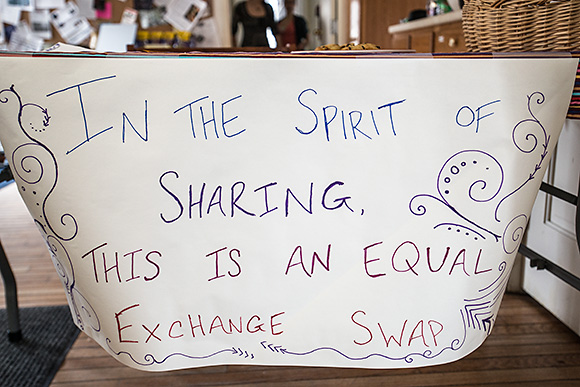 In the Spirit of
Sharing,
This is an equal
Exchange Swap